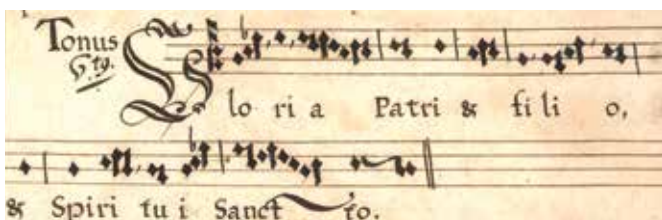 Tonus
Gloria Patri & filio,
& Spiritui Sancto.